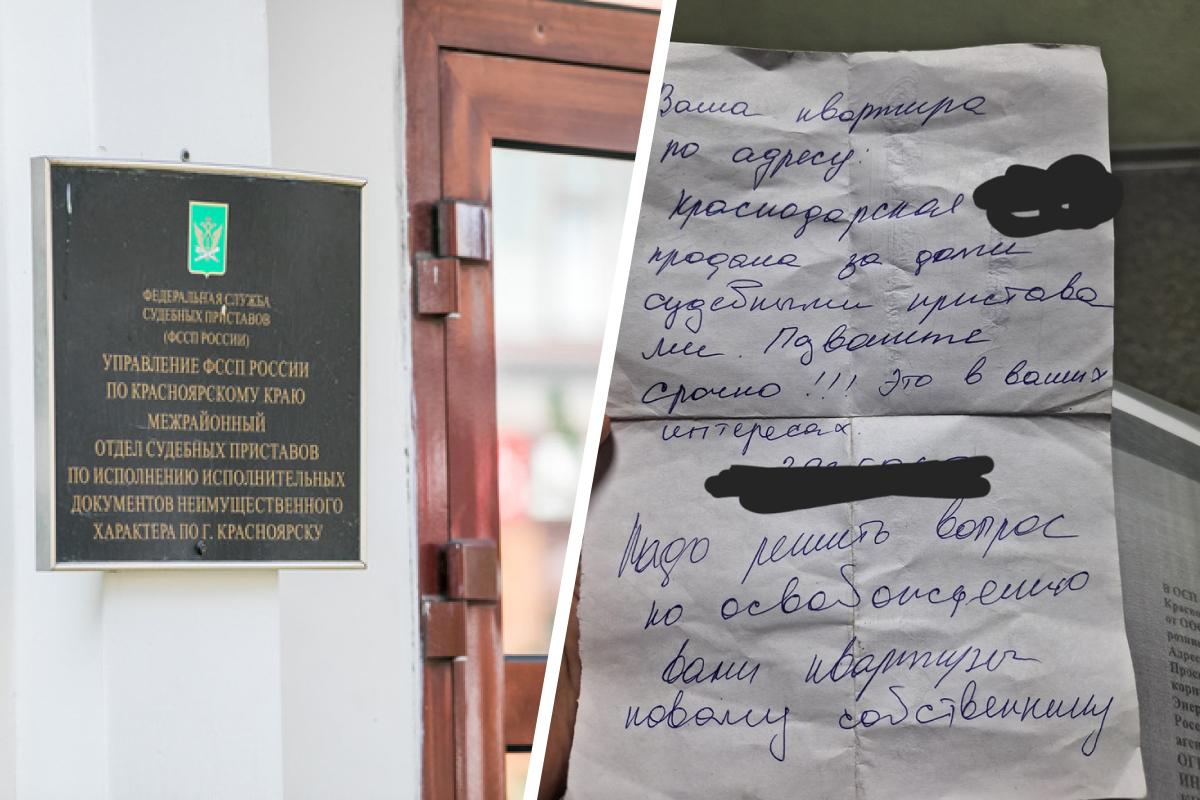 ФЕДЕРАЛЬНАЯ СЛУЖБА
СУДЕБНЫХ ПРИСТАВОВ
(ФССП РОССИИ)
УПРАВЛЕНИЕ ФССП РОССИИ
ПО КРАСНОЯРСКОМУ КРАЮ
МЕЖРАЙОННЫЙ
ОТДЕЛ СУДЕБНЫХ ПРИСТАВОВ
ПО ИСПОЛНЕНИЮ ИСПОЛНИТЕЛЬНЫХ
ДОКУМЕНТОВ НЕИМУЩЕСТВЕННОГО
ХАРАКТЕРА ПО Г. КРАСНОЯРСКУ
Ваша квартира
по адресу:
Краснодарская
продана за долги
судебными пристава
ми. Позвоните
срочно !!! Это в ваших
интересах.
Надо решить вопрос
по освобождению
вами квартиры
новому собственнику
В ОСП
Красн
от Об
розни
Адрес
Прос
корп
Энер
Росс
аген
ОГ
ИН